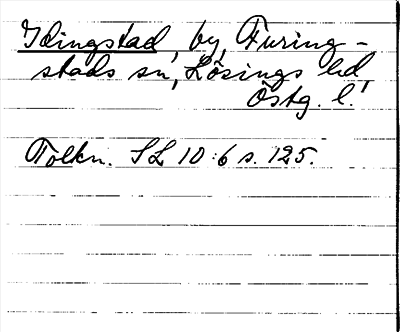 Idingstad, by, Furing-
stads sn, Lösings hd,
Östg. l.
Tolkn. SL 10:6 s. 125.